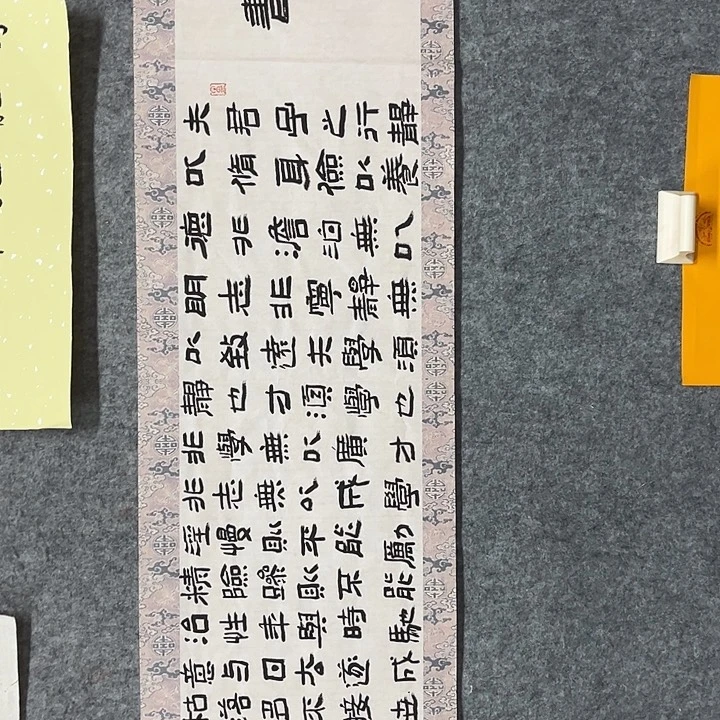 書
夫君子之行靜
以脩身儉以養
德非澹泊無以
明志非寧靜無
以致遠夫學須
靜也才須學也
非學無以廣才
非志無以成學
淫慢則不能勵
精險躁則不能
治性年與時馳
意与日去遂成
枯落多不接世